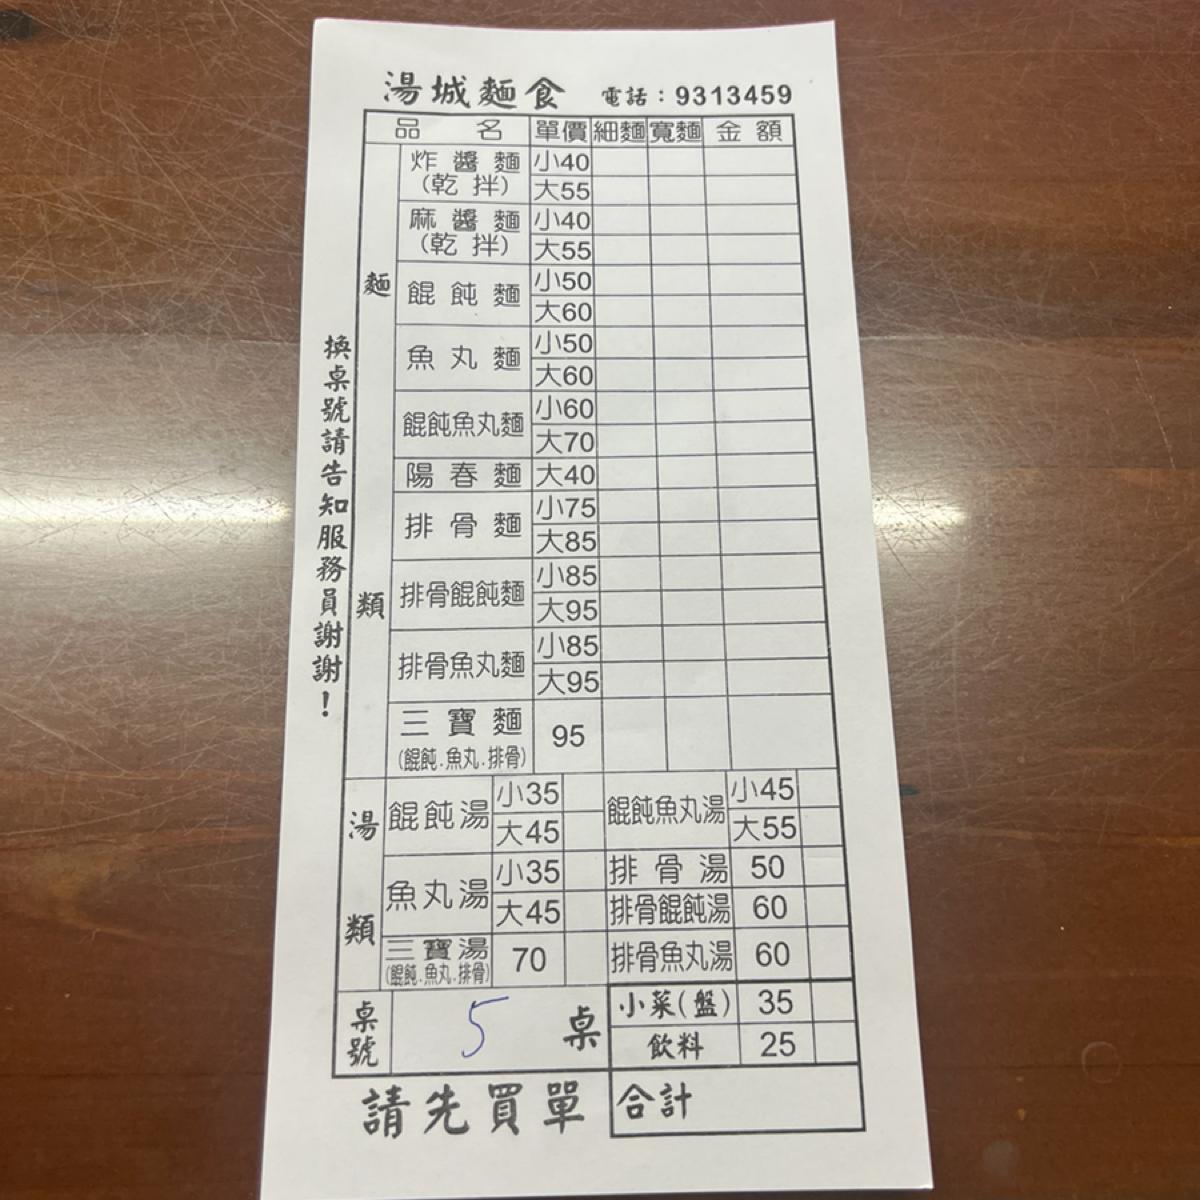 湯城麵食 電話：9313459
品名 單價 細麵 寬麵 金額
麵類
炸醬麵 小40
(乾拌) 大55
麻醬麵 小40
(乾拌) 大55
餛飩麵 小50
大60
魚丸麵 小50
大60
餛飩魚丸麵 小60
大70
陽春麵 大40
排骨麵 小75
大85
排骨餛飩麵 小85
大95
排骨魚丸麵 小85
大95
三寶麵 95
(餛飩.魚丸.排骨)
湯類
餛飩湯 小35 餛飩魚丸湯 小45
大45 大55
魚丸湯 小35 排骨湯 50
大45 排骨餛飩湯 60
三寶湯 70 排骨魚丸湯 60
(餛飩.魚丸.排骨)
桌號 5 桌 小菜(盤) 35
飲料 25
請先買單 合計
換桌號請告知服務員謝謝！